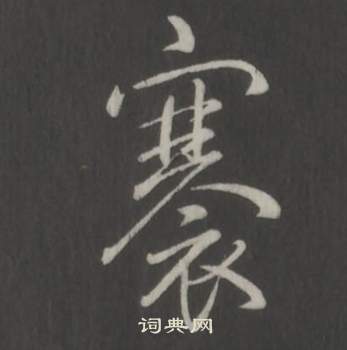 褰
词典网